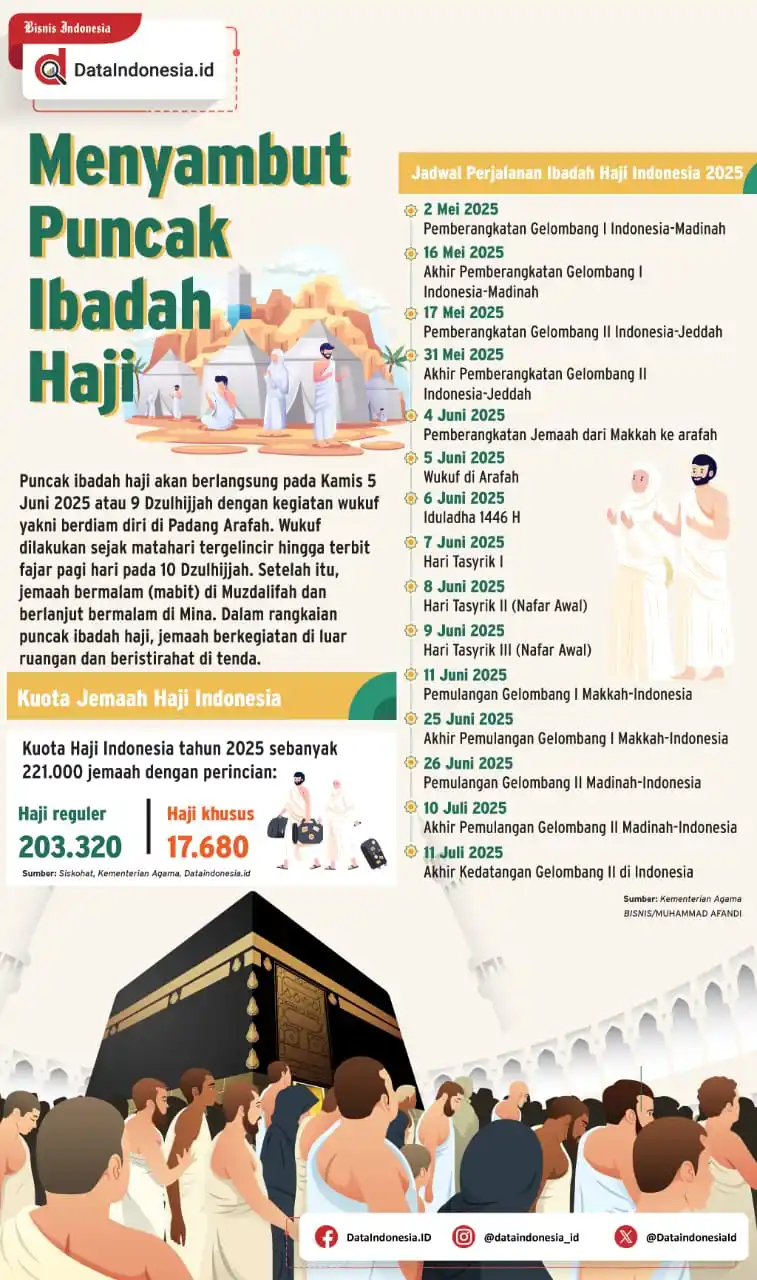 Bisnis Indonesia
DataIndonesia.id
Menyambut
Puncak
Ibadah
Haji
Puncak ibadah haji akan berlangsung pada Kamis 5
Juni 2025 atau 9 Dzulhijjah dengan kegiatan wukuf
yakni berdiam diri di Padang Arafah. Wukuf
dilakukan sejak matahari tergelincir hingga terbit
fajar pagi hari pada 10 Dzulhijjah. Setelah itu,
jemaah bermalam (mabit) di Muzdalifah dan
berlanjut bermalam di Mina. Dalam rangkaian
puncak ibadah haji, jemaah berkegiatan di luar
ruangan dan beristirahat di tenda.
Kuota Jemaah Haji Indonesia
Kuota Haji Indonesia tahun 2025 sebanyak
221.000 jemaah dengan perincian:
Haji reguler
203.320
Haji khusus
17.680
Sumber: Siskohat, Kementerian Agama, Dataindonesia.id
Jadwal Perjalanan Ibadah Haji Indonesia 2025
2 Mei 2025
Pemberangkatan Gelombang I Indonesia-Madinah
16 Mei 2025
Akhir Pemberangkatan Gelombang I
Indonesia-Madinah
17 Mei 2025
Pemberangkatan Gelombang II Indonesia-Jeddah
31 Mei 2025
Akhir Pemberangkatan Gelombang II
Indonesia-Jeddah
4 Juni 2025
Pemberangkatan Jemaah dari Makkah ke arafah
5 Juni 2025
Wukuf di Arafah
6 Juni 2025
Iduladha 1446 H
7 Juni 2025
Hari Tasyrik I
8 Juni 2025
Hari Tasyrik II (Nafar Awal)
9 Juni 2025
Hari Tasyrik III (Nafar Awal)
11 Juni 2025
Pemulangan Gelombang I Makkah-Indonesia
25 Juni 2025
Akhir Pemulangan Gelombang I Makkah-Indonesia
26 Juni 2025
Pemulangan Gelombang II Madinah-Indonesia
10 Juli 2025
Akhir Pemulangan Gelombang II Madinah-Indonesia
11 Juli 2025
Akhir Kedatangan Gelombang II di Indonesia
Sumber: Kementerian Agama
BISNIS/MUHAMMAD AFANDI
DataIndonesia.ID
@dataindonesia_id
@DataindonesiaId